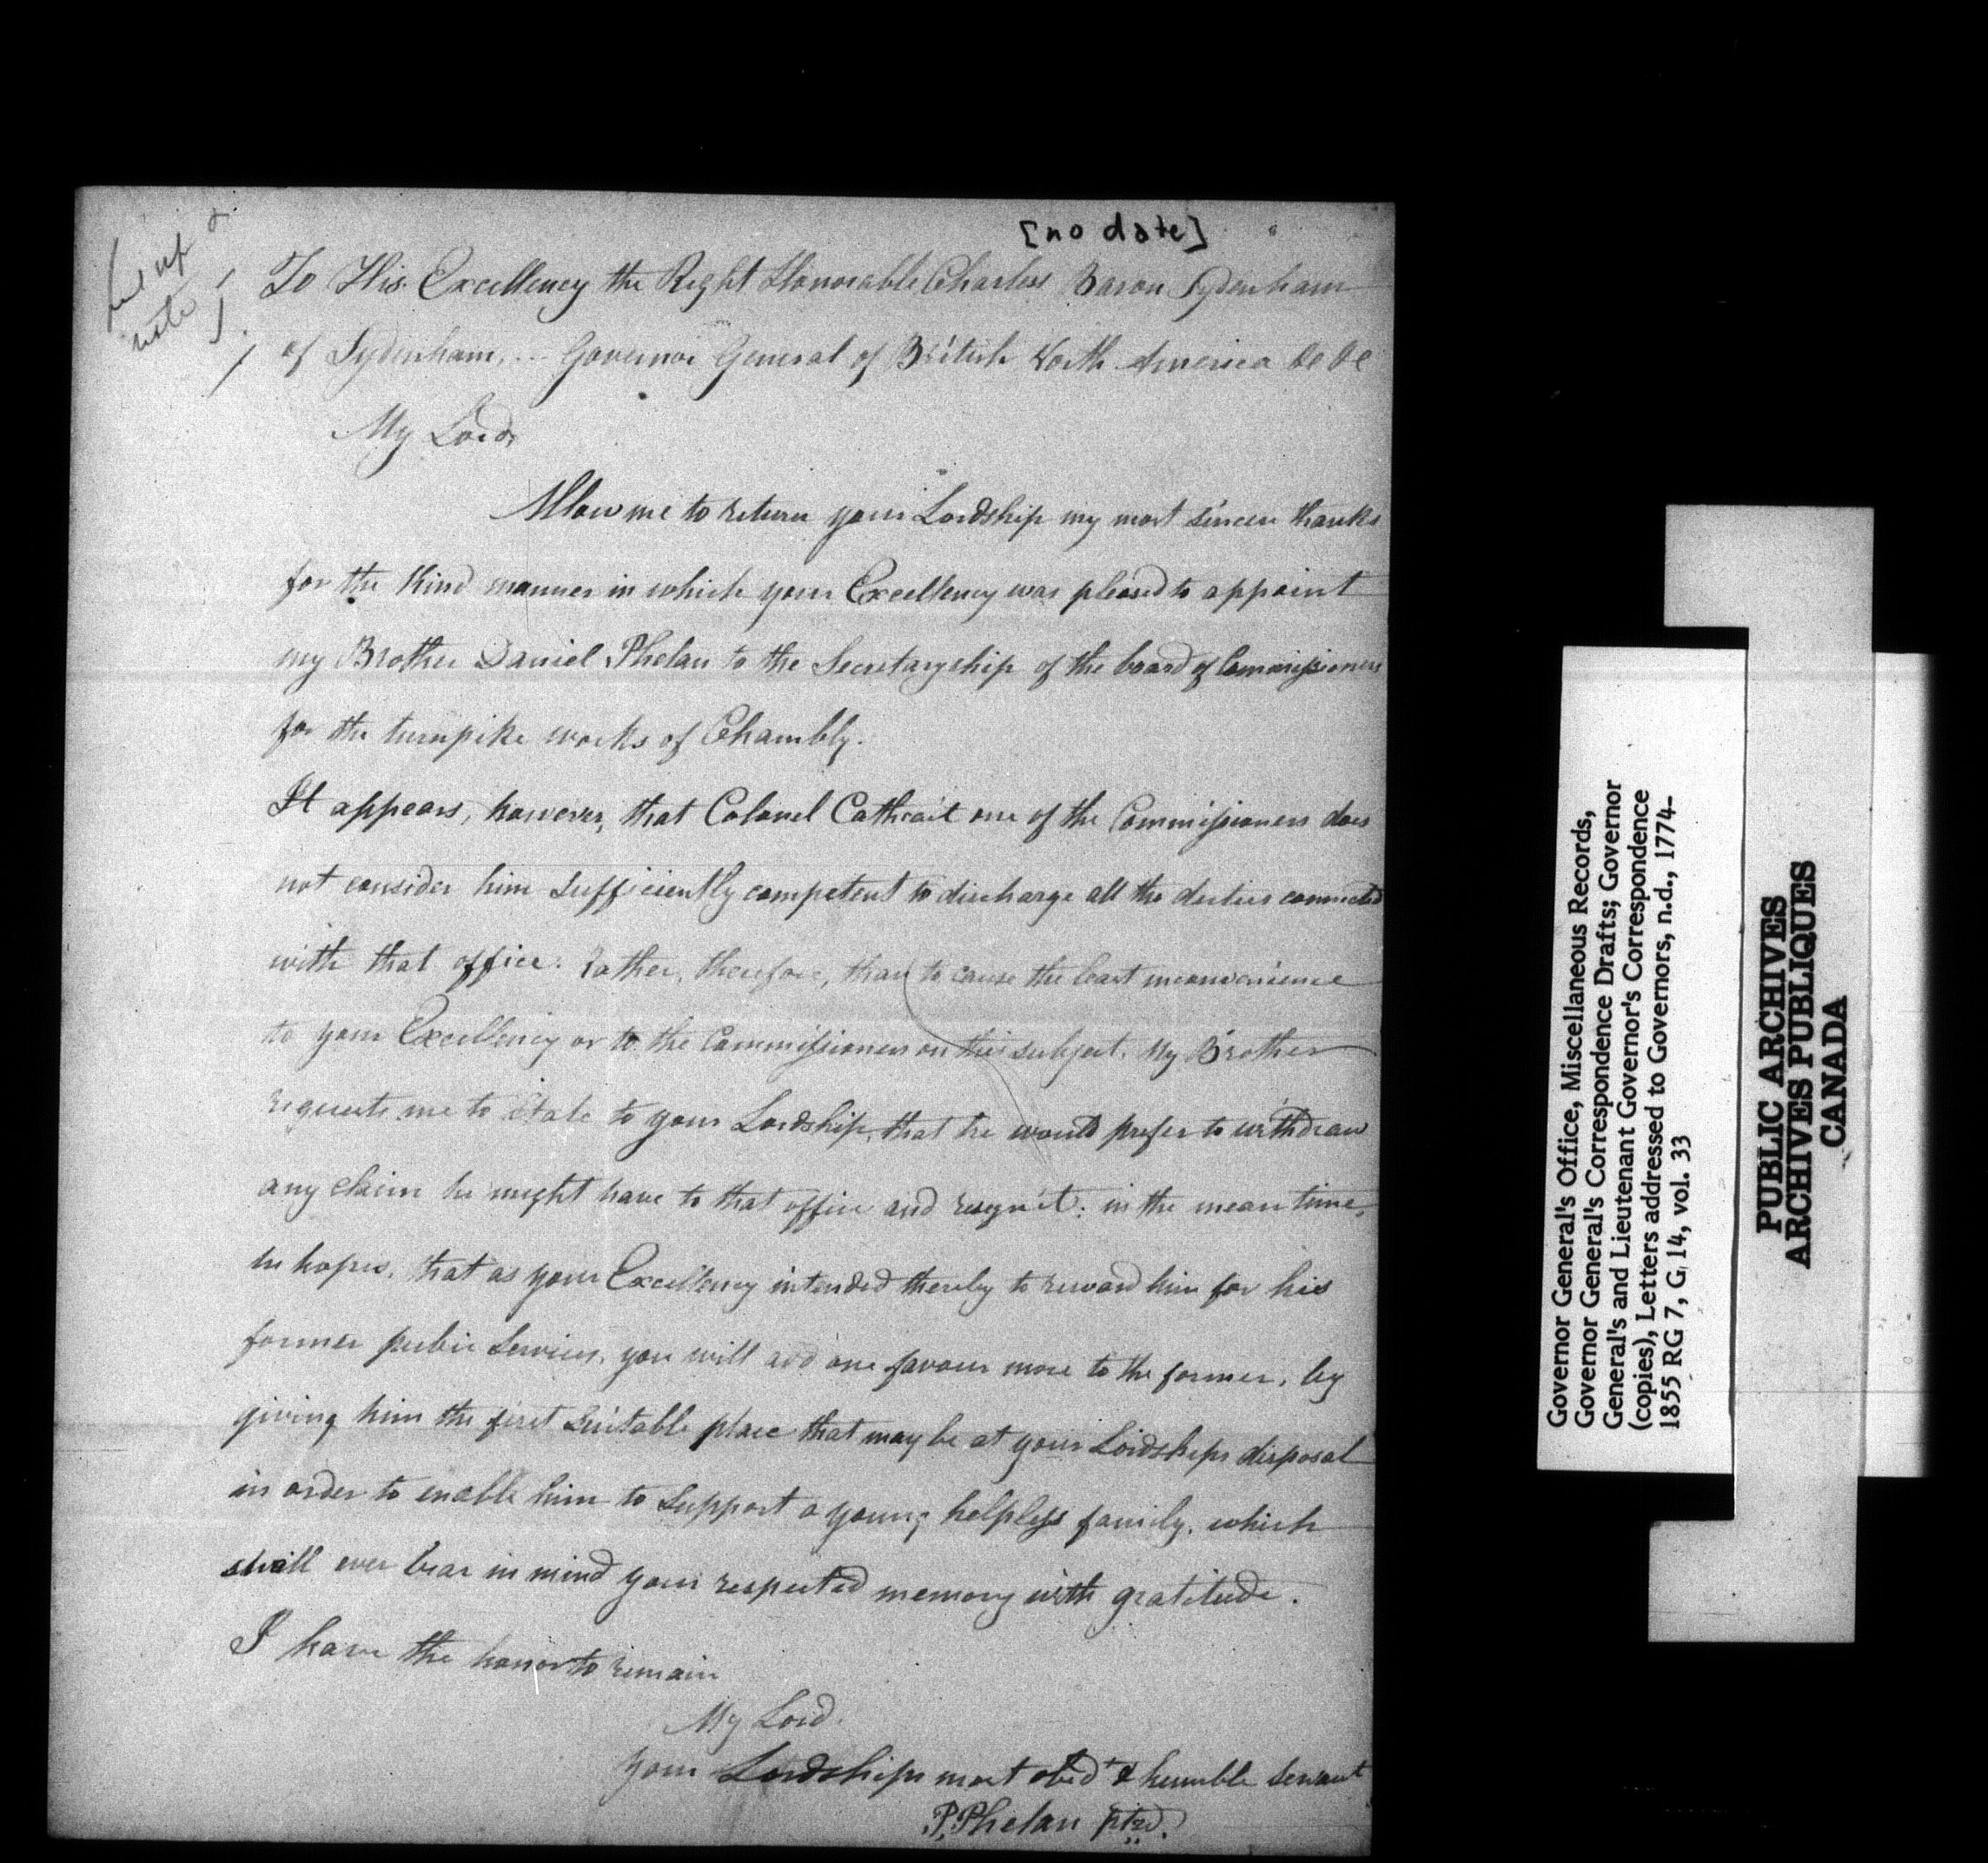 [no date]
note
To His Excellency the Right Honorable Charles Baron Sydenham
of Sydenham, ... Governor General of British North America &c &c
My Lord,
Allow me to return your Lordship my most sincere thanks
for the kind manner in which your Excellency was pleased to appoint
my Brother Daniel Phelan to the Secretaryship of the board of Commissioners
for the turnpike works of Chambly.
It appears, however, that Colonel Cathcart one of the Commissioners does
not consider him sufficiently competent to discharge all the duties connected
with that office. Rather, therefore, than to cause the least inconvenience
to your Excellency or to the Commissioners on this subject, My Brother
requests me to state to your Lordship, that he would prefer to withdraw
any claim he might have to that office and resign it: in the mean time,
in hopes, that as your Excellency intended thereby to reward him for his
former public Services, you will add one favour more to the former, by
giving him the first suitable place that may be at your Lordships disposal
in order to enable him to support a young helpless family, which
shall ever bear in mind your respected memory with gratitude.
I have the honor to remain
My Lord.
your Lordships most obedt & humble servant
P. Phelan
Governor General's Office, Miscellaneous Records,
Governor General's Correspondence Drafts; Governor
General's and Lieutenant Governor's Correspondence
(copies), Letters addressed to Governors, n.d., 1774-
1855 RG 7, G 14, vol. 33
PUBLIC ARCHIVES
ARCHIVES PUBLIQUES
CANADA